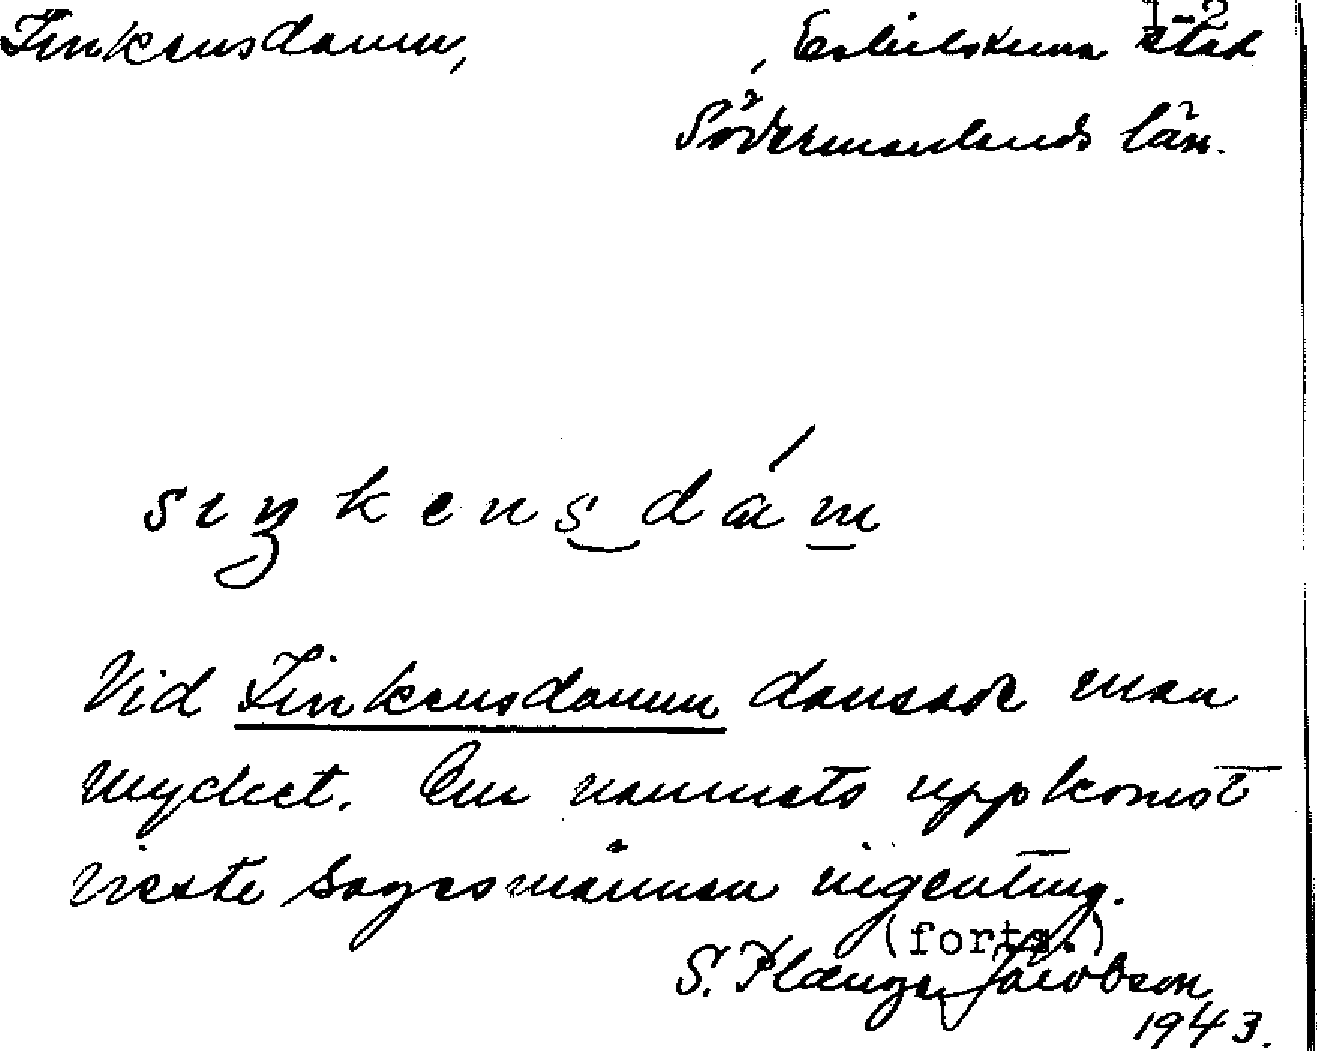 Sinkensdamm,
1-2
, Eskilstuna stad
Södermanlands län.
sıŋkensdám
Vid Sinkensdamm dansade man
mycket. Om namnets uppkomst
visste sagesmännen ingenting.
(forts.)
S. Plænge Jacobson
1943.